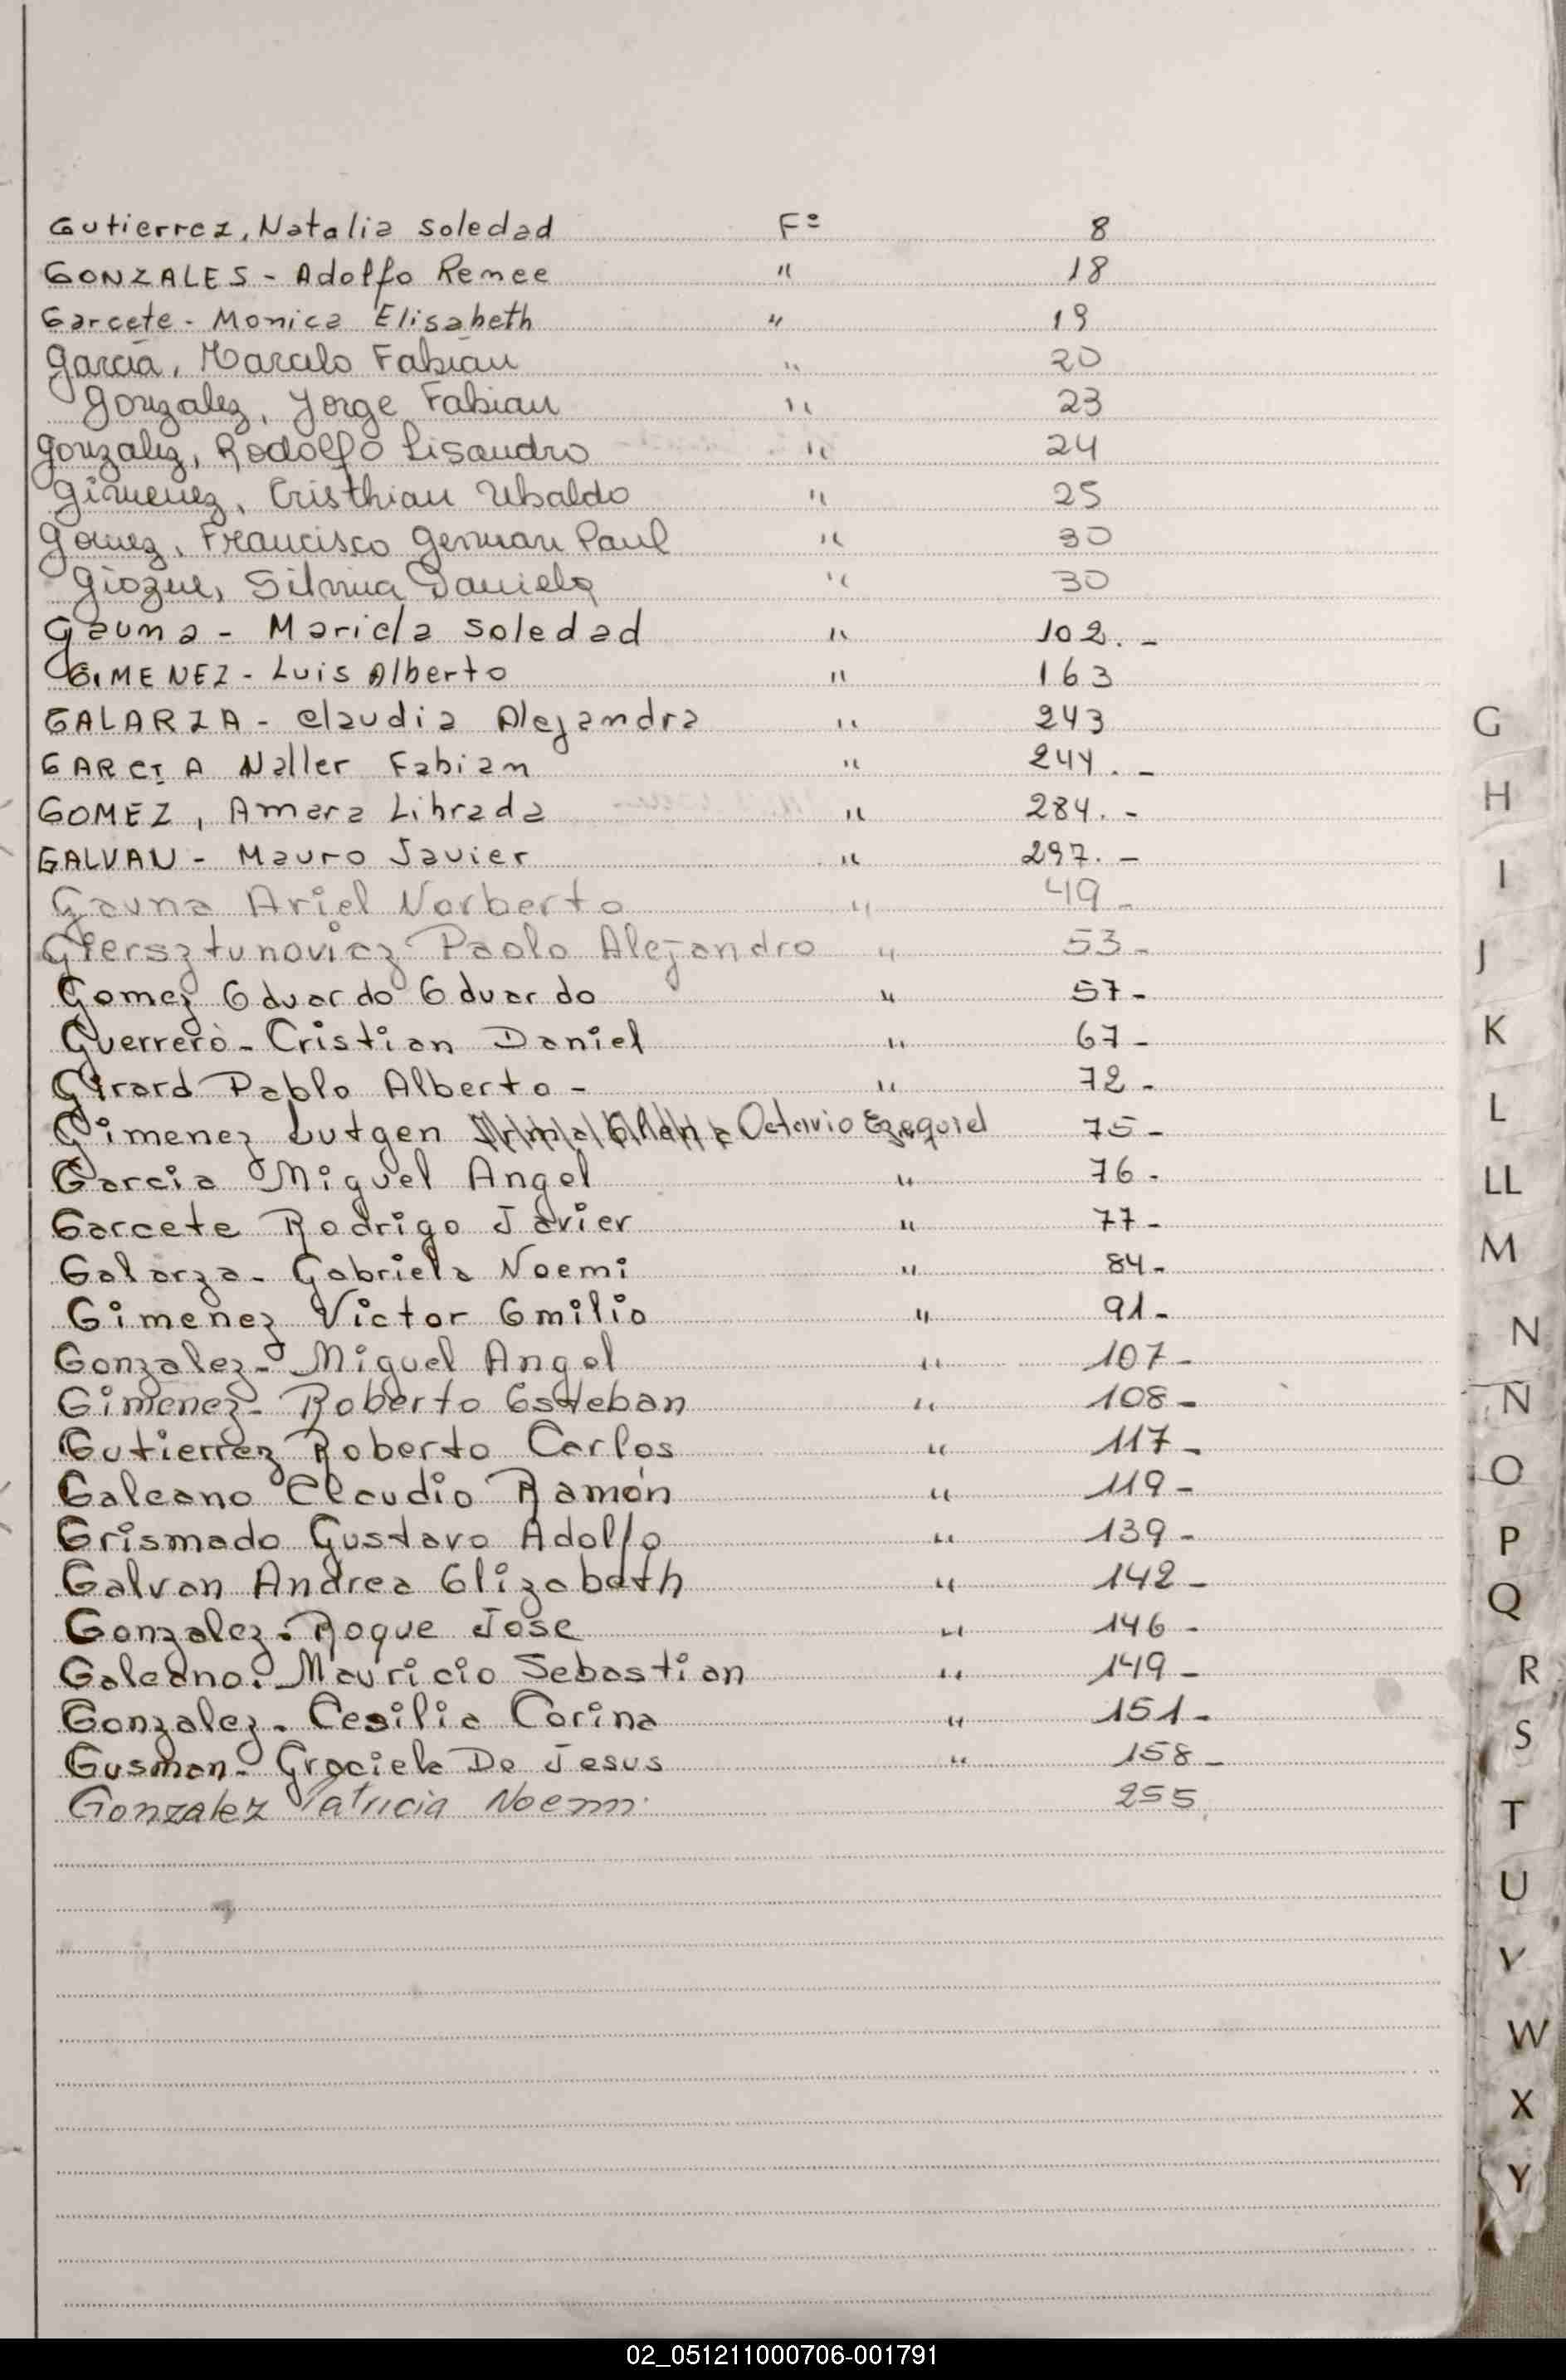 Gutierrez, Natalia Soledad F° 8
GONZALES - Adolfo Renee " 18
Garcete - Monica Elisabeth " 19
Garcia, Marcelo Fabián " 20
Gonzalez, Jorge Fabian " 23
Gonzalez, Rodolfo Lisandro " 24
Gimenez, Cristhian Ubaldo " 25
Gomez, Francisco German Paul " 30
Giozue, Silvina Daniela " 30
Gauna - Mariela Soledad " 102. -
GIMENEZ - Luis Alberto " 163
GALARZA - Claudia Alejandra " 243
GARCIA Naller Fabian " 244. -
GOMEZ, Amara Librada " 284. -
GALVAN - Mauro Javier " 297. -
Gauna Ariel Norberto " 49 -
Giersztunovicz Paolo Alejandro " 53 -
Gomez Eduardo Eduardo " 57 -
Guerrero - Cristian Daniel " 67 -
Girard Pablo Alberto - " 72 -
Gimenez Lutgen Octavio Ezequiel 75 -
Garcia Miguel Angel " 76 -
Garcete Rodrigo Javier " 77 -
Galarza - Gabriela Noemi " 84 -
Gimenez Victor Emilio " 91 -
Gonzalez - Miguel Angel " 107 -
Gimenez - Roberto Esteban " 108 -
Gutierrez Roberto Carlos " 117 -
Galeano Claudio Ramón " 119 -
Grismado Gustavo Adolfo " 139 -
Galvan Andrea Elizabeth " 142 -
Gonzalez. Roque Jose " 146 -
Galeano. Mauricio Sebastian " 149 -
Gonzalez - Cesilia Corina " 151 -
Gusman - Graciela De Jesus " 158 -
Gonzalez Patricia Noemi. 255.
G
H
I
J
K
L
LL
M
N
Ñ
O
P
Q
R
S
T
U
V
W
X
Y
02_051211000706-001791